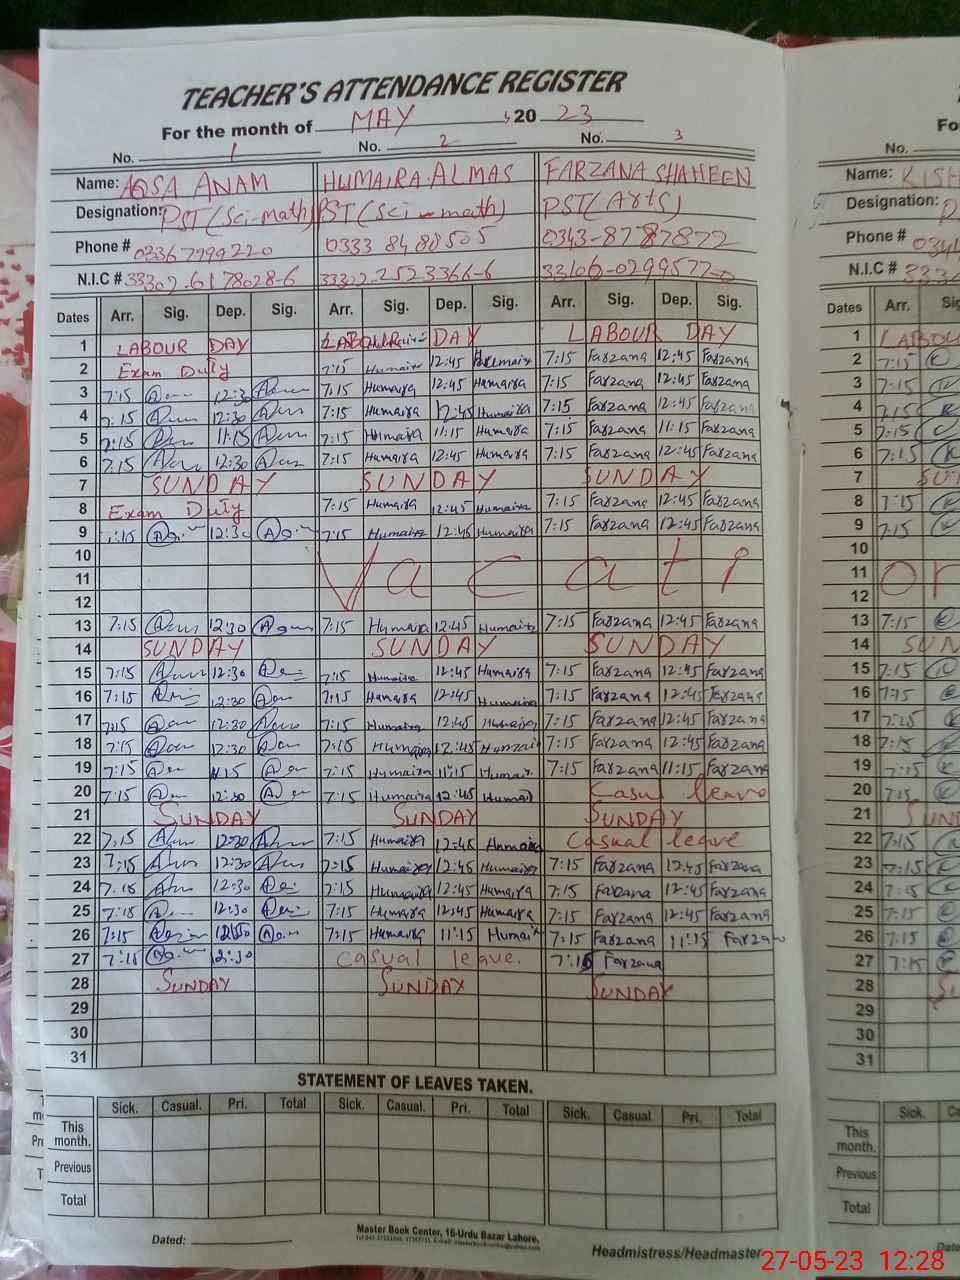 TEACHER'S ATTENDANCE REGISTER
For the month of MAY 20 23
No. 1 No. 2 No. 3
Name: AQSA ANAM HUMAIRA ALMAS FARZANA SHAHEEN
Designation: PST(Sci-math) PST(Sci-math) PST(Arts)
Phone # 03367999220 0333 8488505 0343-8787872
N.I.C # 33302-6178028-6 33302-2523366-6
Dates Arr. Sig. Dep. Sig. Arr. Sig. Dep. Sig. Arr. Sig. Dep. Sig.
1 LABOUR DAY LABOUR DAY LABOUR DAY
2 Exam Duty 7:15 Humaira 12:45 Humaira 7:15 Farzana 12:45 Farzana
3 7:15 12:30 7:15 Humaira 12:45 Humaira 7:15 Farzana 12:45 Farzana
4 7:15 12:30 7:15 Humaira 12:45 Humaira 7:15 Farzana 12:45 Farzana
5 7:15 11:15 7:15 Humaira 11:15 Humaira 7:15 Farzana 11:15 Farzana
6 7:15 12:30 7:15 Humaira 12:45 Humaira 7:15 Farzana 12:45 Farzana
7 SUNDAY SUNDAY SUNDAY
8 Exam Duty 7:15 Humaira 12:45 Humaira 7:15 Farzana 12:45 Farzana
9 7:15 12:30 7:15 Humaira 12:45 Humaira 7:15 Farzana 12:45 Farzana
10
11 Vacati
12
13 7:15 12:30 7:15 Humaira 12:45 Humaira 7:15 Farzana 12:45 Farzana
14 SUNDAY SUNDAY SUNDAY
15 7:15 12:30 7:15 Humaira 12:45 Humaira 7:15 Farzana 12:45 Farzana
16 7:15 12:30 7:15 Humaira 12:45 Humaira 7:15 Farzana 12:45 Farzana
17 7:15 12:30 7:15 Humaira 12:45 Humaira 7:15 Farzana 12:45 Farzana
18 7:15 12:30 7:15 Humaira 12:45 Humaira 7:15 Farzana 12:45 Farzana
19 7:15 11:15 7:15 Humaira 11:15 Humaira 7:15 Farzana 11:15 Farzana
20 7:15 12:30 7:15 Humaira 12:45 Humaira Casual leave
21 SUNDAY SUNDAY SUNDAY
22 7:15 12:30 7:15 Humaira 12:45 Humaira Casual leave
23 7:15 12:30 7:15 Humaira 12:45 Humaira 7:15 Farzana 12:45 Farzana
24 7:15 12:30 7:15 Humaira 12:45 Humaira 7:15 Farzana 12:45 Farzana
25 7:15 12:30 7:15 Humaira 12:45 Humaira 7:15 Farzana 12:45 Farzana
26 7:15 7:15 Humaira 11:15 Humaira 7:15 Farzana 11:15 Farzana
27 7:15 12:30 Casual leave. 7:15 Farzana
28 SUNDAY SUNDAY SUNDAY
29
30
31
STATEMENT OF LEAVES TAKEN.
Sick. Casual. Pri. Total Sick. Casual. Pri. Total Sick. Casual. Pri. Total
This month.
Previous
Total
Dated:
Master Book Center, 16-Urdu Bazar Lahore.
Headmistress/Headmaster
No.
Name: KISH
Designation:
Phone #
N.I.C #
Dates Arr.
1 LABOU
2 7:15
3 7:15
4 7:15
5 7:15
6 7:15
7 SU
8 7:15
9 7:15
10
11 on
12
13 7:15
14 SUN
15 7:15
16 7:15
17 7:15
18 7:15
19 7:15
20 7:15
21 SUND
22 7:15
23 7:15
24 7:15
25 7:15
26 7:15
27 7:15
28 SU
29
30
31
Sick.
This month.
Previous
Total
27-05-23 12:28